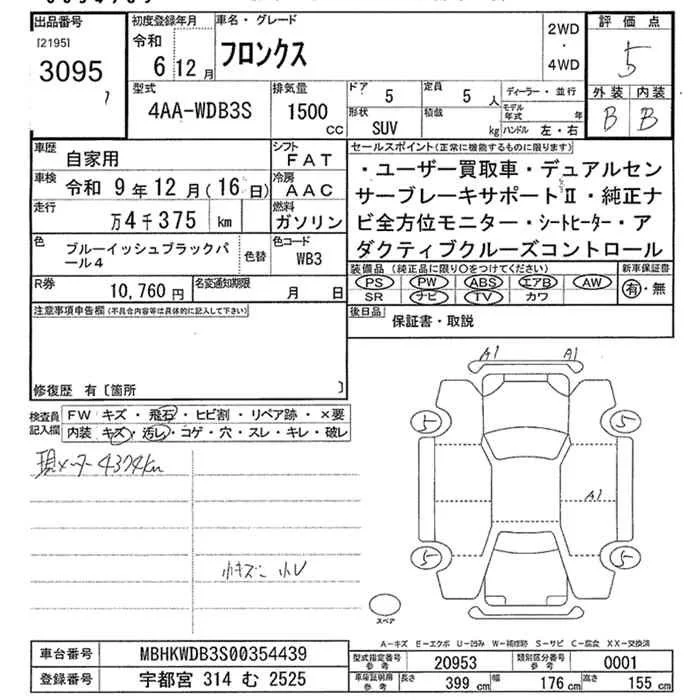 出品番号
[2195]
3095
初度登録年月
令和
6 12月
車名・グレード
フロンクス
2WD
・
4WD
評価点
5
外装 内装
B B
型式
4AA-WDB3S
排気量
1500 cc
ドア 5
定員 5 人
形状 SUV
積載 kg
ディーラー・並行
モデル年式 年
ハンドル 左・右
車歴 自家用
シフト FAT
車検 令和 9年12月(16日)
冷房 AAC
走行 万4千375 km
燃料 ガソリン
色 ブルーイッシュブラックパール4
色替
色コード WB3
R券 10,760円
名変通知期限 月 日
セールスポイント(正常に機能するものに限ります)
・ユーザー買取車・デュアルセン
サーブレーキサポートⅡ・純正ナ
ビ全方位モニター・シートヒーター・ア
ダクティブクルーズコントロール
装備品(純正品に限り○をつけてください)
PS PW ABS エアB AW
SR ナビ TV カワ
新車保証書
有・無
後日品 保証書・取説
注意事項申告欄(不具合内容等は具体的に記入して下さい)
修復歴 有〔箇所 〕
検査員記入欄
FW キズ・飛石・ヒビ割・リペア跡・×要
内装 キズ・汚レ・コゲ・穴・スレ・キレ・破レ
現メーター4374km
小キズ 小U
A1 A1
5 5
A1
5 5
スペア
A-キズ E-エクボ U-凹み W-補修跡 S-サビ C-腐食 XX-交換済
車台番号 MBHKWDB3S00354439
登録番号 宇都宮 314 む 2525
型式指定番号参考 20953
類別区分番号参考 0001
車検証明用参考 長さ 399 cm 幅 176 cm 高さ 155 cm